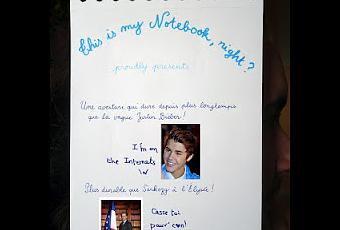 This is my Notebook, right?
proudly presents
Une aventure qui dure depuis plus longtemps
que la vague Justin Bieber !
I'm on
the Internets
\o/
Plus durable que Sarkozy à l'Elysée !
Casse toi
pauv' con!